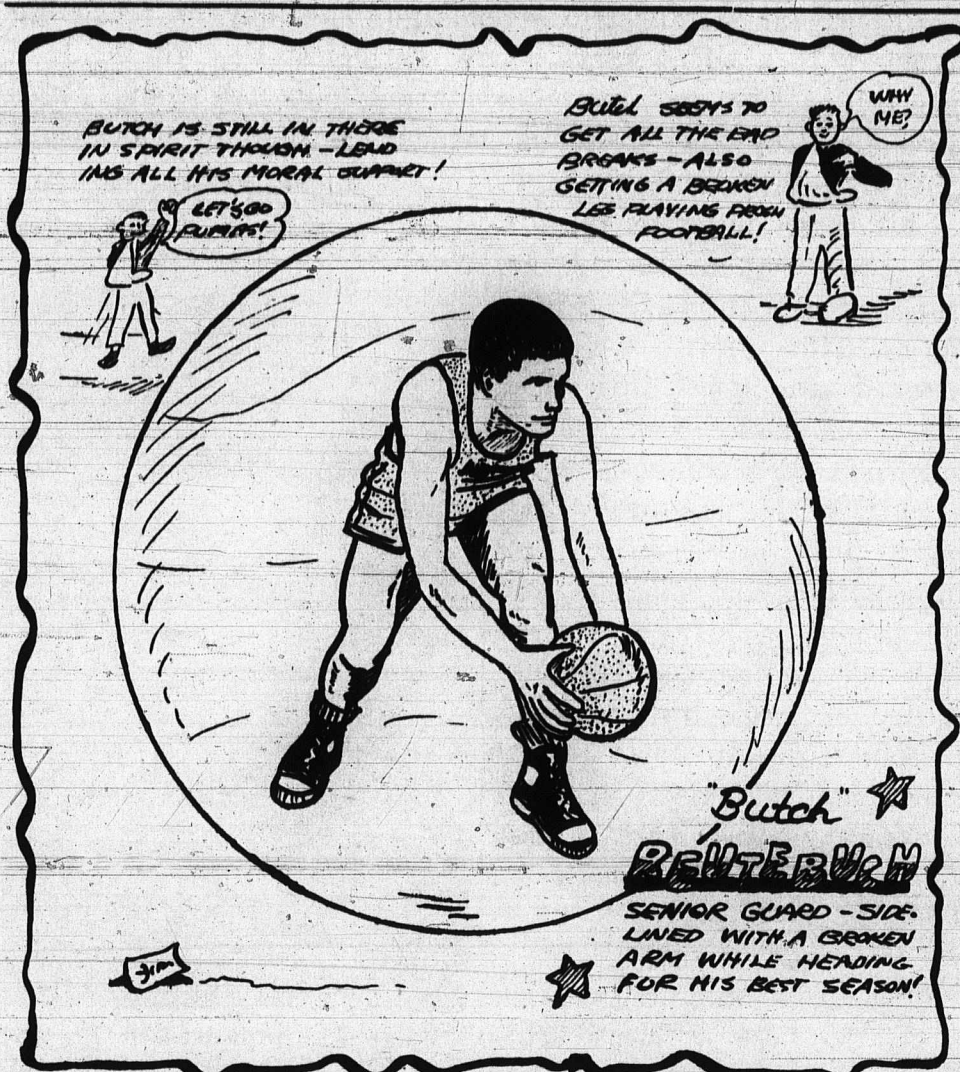 BUTCH IS STILL IN THERE
IN SPIRIT THOUGH - LEND
ING ALL HIS MORAL SUPPORT!
LET'S GO
PUMAS!
BUTCH SEEMS TO
GET ALL THE BAD
BREAKS - ALSO
GETTING A BROKEN
LEG PLAYING FROSH
FOOTBALL!
WHY
ME?
"Butch"
BEUTERBUCH
SENIOR GUARD - SIDE-
LINED WITH A BROKEN
ARM WHILE HEADING
FOR HIS BEST SEASON!
Jim